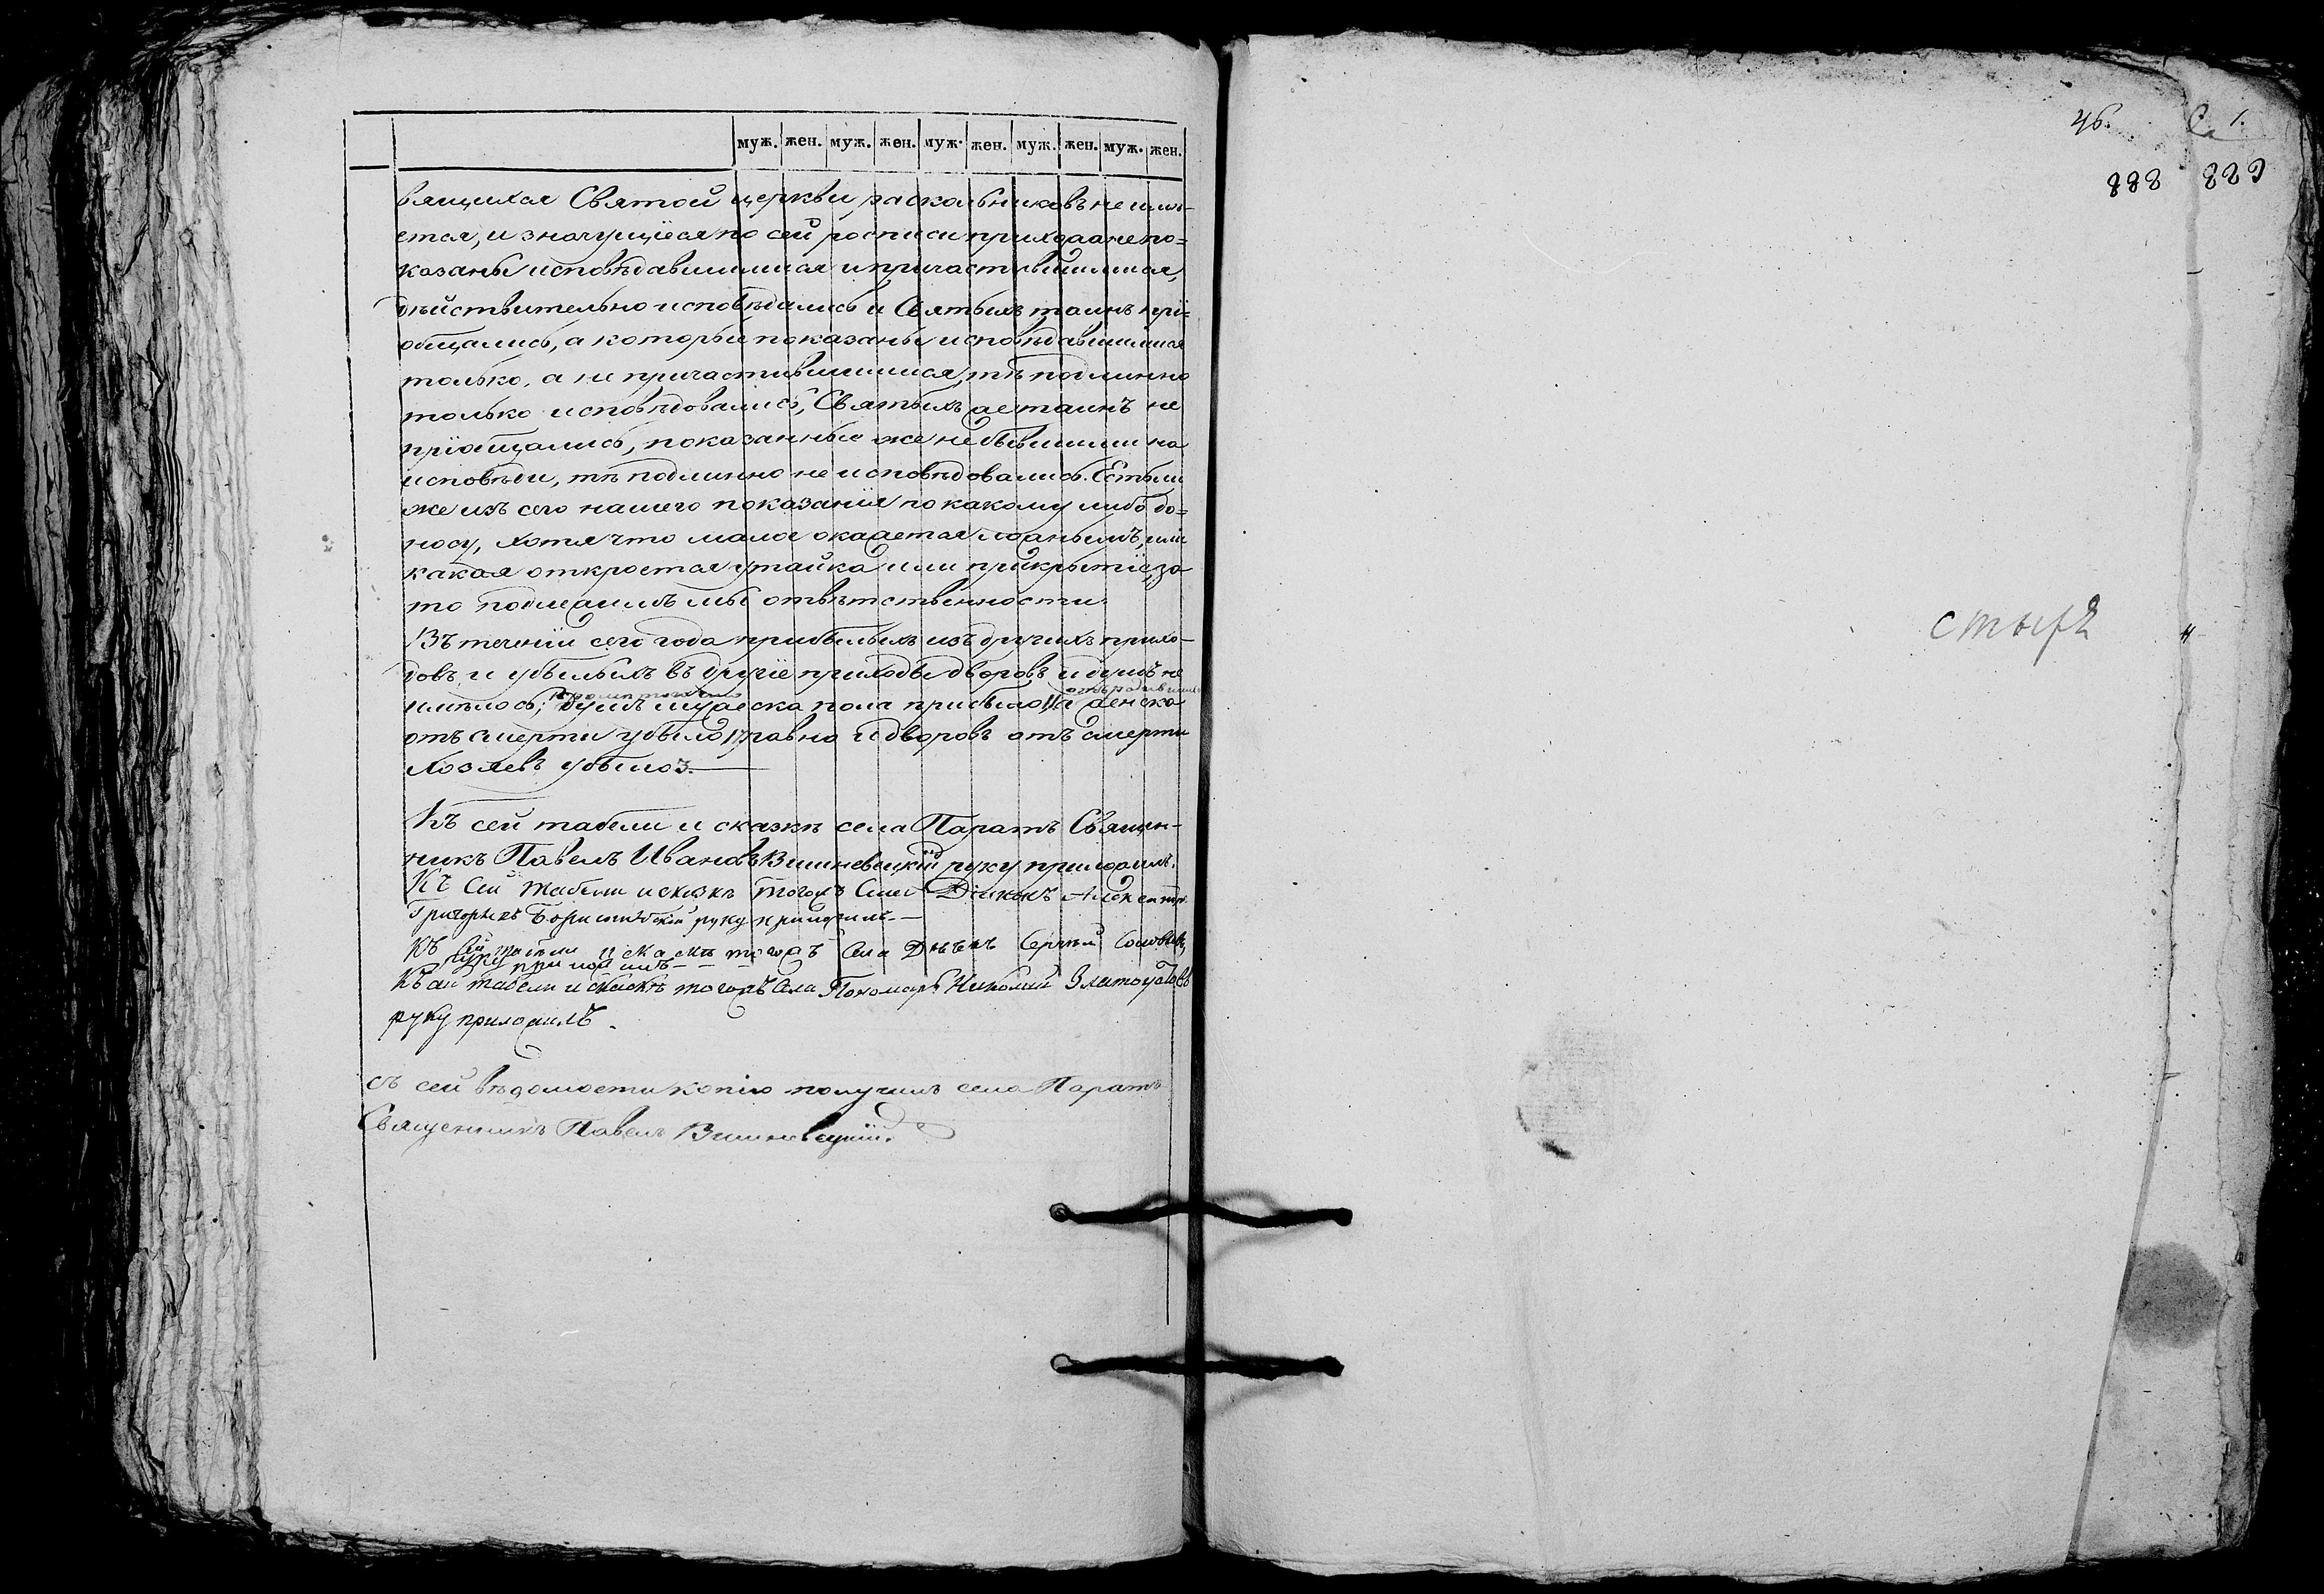 муж. жен. муж. жен. муж. жен. муж. жен. муж. жен.
вящихся Святой церкви раскольниковъ не имѣ-
ется, и значущіеся по сей росписи прихожане по=
казаны исповѣдавшимися и причастившимися,
дѣйствительно исповѣдались и Святыхъ таинъ прі=
общались, а которые показаны исповѣдавшимися
только, а не причастившимися, тѣ подлинно
только исповѣдовались, Святыхъ же таинъ не
пріобщались, показанные же небывшими на
исповѣди, тѣ подлинно не исповѣдовались. Естьли
же изъ сего нашего показанія по какому либо до=
носу, хотя что малое окажется ложнымъ, или
какая откроется утайка или прикрытіе, за
то подлежимъ мы отвѣтственности.
Въ теченіи сего года прибылыхъ изъ другихъ прихо-
довъ и убылыхъ въ другіе приходы дворовъ и душъ не
имѣлось; душъ мужеска пола прибыло и женска
отъ смерти убыло 17 равно и дворовъ отъ смерти
хозяевъ убыло 3.
Къ сей табели и сказкѣ села Паратъ Священ-
никъ Павелъ Ивановъ Вишневецкій руку приложилъ.
Къ сей табели и сказкѣ тогожъ села Діаконъ Александръ
Григорьевъ руку приложилъ.
Къ сей табели и сказкѣ тогожъ села Дьячекъ Сергѣй Соловьевъ
руку приложилъ
Къ сей табели и сказкѣ тогожъ села Пономарь Николай Златоустовъ
руку приложилъ.
съ сей вѣдомости копію получилъ села Паратъ
Священникъ Павелъ Вишневецкій.
46.
888 889